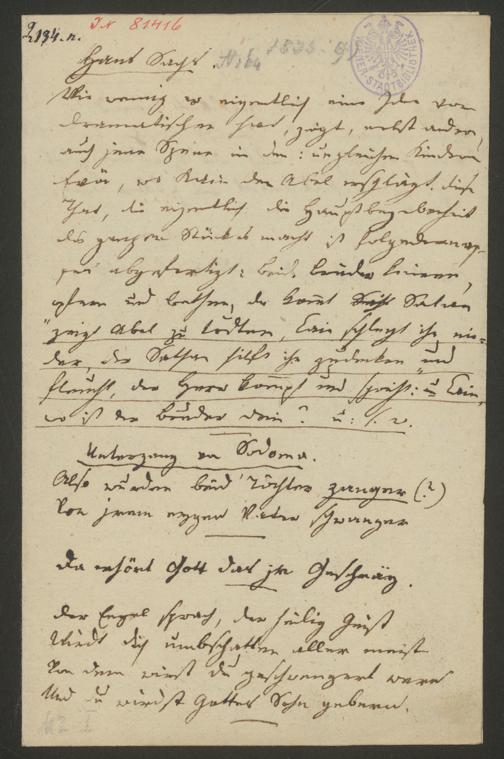 2134.n.
IN 81416
Hans Sachs
1835
WIENER STADTBIBLIOTHEK
Wie wenig er eigentlich eine Idee vom
Dramatischen hat, zeigt, nebst andern,
auch jene Szene in den: ungleichen Kindern
Evä, wo Kain den Abel erschlägt. Diese
That, die eigentlich die Hauptbegebenheit
des ganzen Stückes macht ist folgendermas-
sen abgefertigt: beide Brüder knieen,
opfern und beten, da kommt Satan
zeigt Abel zu tödten, Cain schlegt ihn nie-
der, der Sathan hilft ihn zudecken und
fleucht, der Herr kompt und spricht: Cain,
wo ist der bruder dein? u: s. w.
Untergang von Sodoma.
Also wurden beid Töchter zanger (?)
Von jrem eygen Vater schwanger
Da erhört Gott das jr Geschray.
Der Engel sprach, der heilig Geist
Wirdt dich umbschatten aller meist
Von dem wirst du geschwengert wern
Und du wirdst Gottes Sohn gebern.